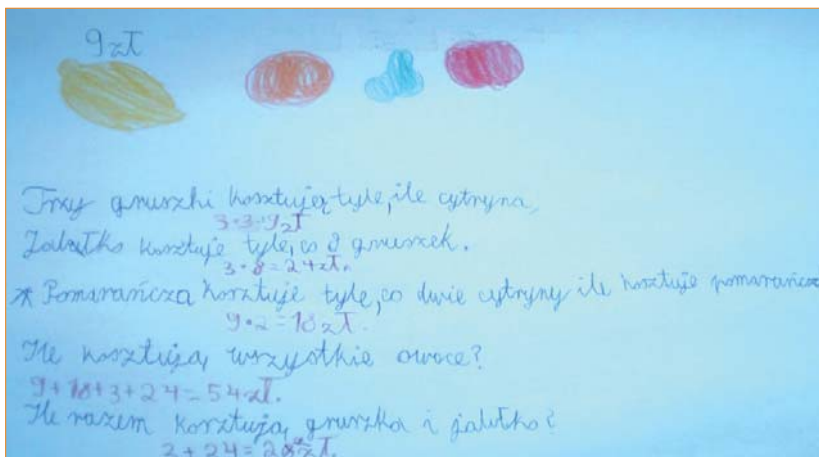 9 zł
Trzy gruszki kosztują tyle, ile cytryna,
3·3=9zł
Jabłko kosztuje tyle, co 8 gruszek.
3·8=24zł.
* Pomarańcza kosztuje tyle, co dwie cytryny ile kosztuje pomarańcza
9·2=18zł.
Ile kosztują wszystkie owoce?
9+18+3+24=54zł.
Ile razem kosztują gruszka i jabłko?
+24=